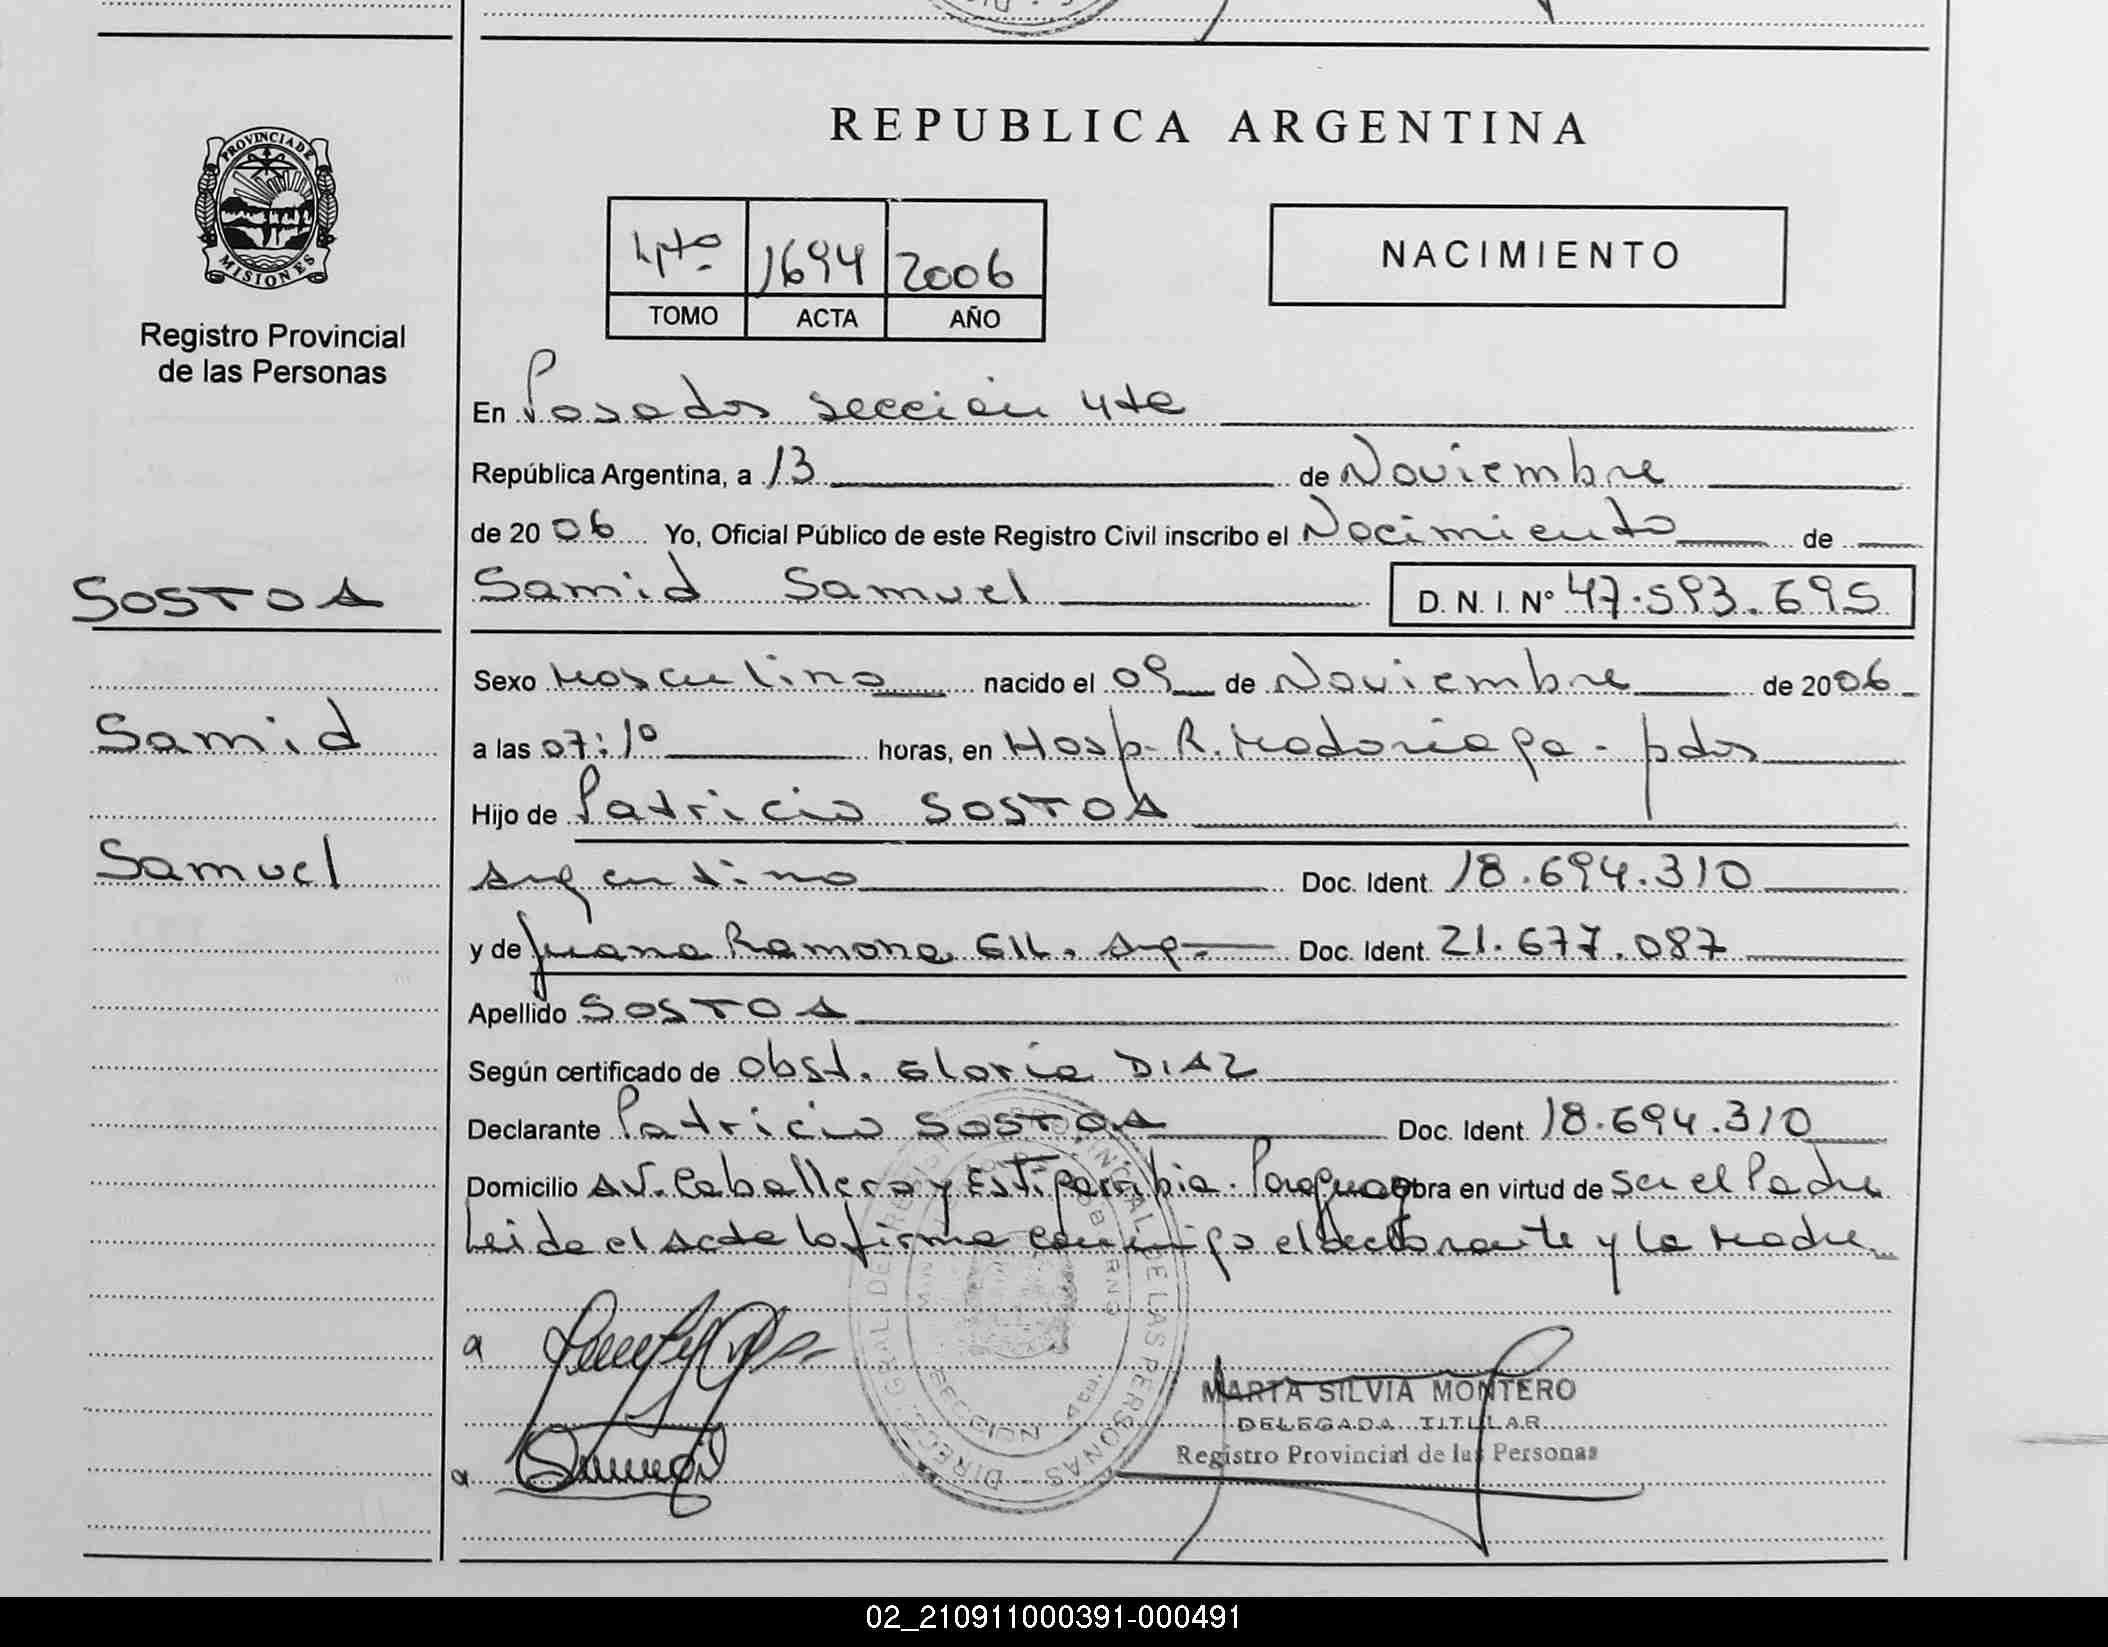 PROVINCIA DE
MISIONES
Registro Provincial
de las Personas
SOSTOA
Samid
Samuel
REPUBLICA ARGENTINA
4to 1694 2006
TOMO ACTA AÑO
NACIMIENTO
En Posadas sección 4ta
República Argentina, a 13 de Noviembre
de 2006 Yo, Oficial Público de este Registro Civil inscribo el Nacimiento de
Samid Samuel D. N. I. Nº 47.593.695
Sexo Masculino nacido el 09 de Noviembre de 2006
a las 07:10 horas, en Hosp. R. Madariaga - pdas
Hijo de Patricio SOSTOA
Argentino Doc. Ident. 18.694.310
y de Juana Ramona GIL. Arg- Doc. Ident. 21.677.087
Apellido SOSTOA
Según certificado de Obst. Gloria DIAZ
Declarante Patricio SOSTOA Doc. Ident. 18.694.310
Domicilio AV. Caballero y Estigarribia. Paraguay obra en virtud de Ser el Padre
Leida el acta la firma conmigo el declarante y la Madre
a
a
MARTA SILVIA MONTERO
DELEGADA TITULAR
Registro Provincial de las Personas
02_210911000391-000491